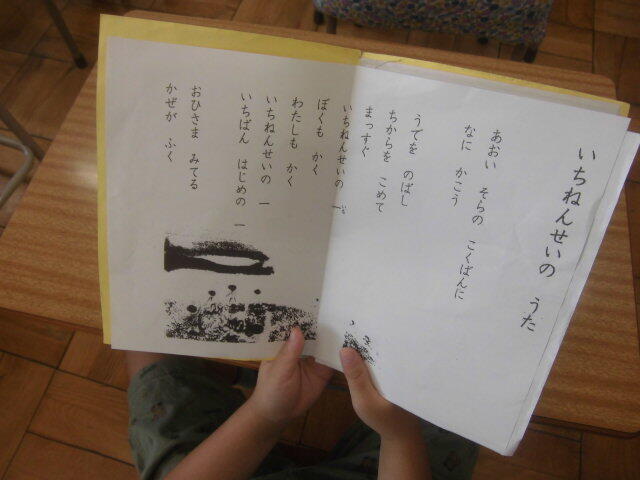 いちねんせいの うた
あおい そらの こくばんに
なに かこう
うでを のばし
ちからを こめて
まっすぐ
いちねんせいの 一
ぼくも かく
わたしも かく
いちねんせいの 一
いちばん はじめの 一
おひさま みてる
かぜが ふく